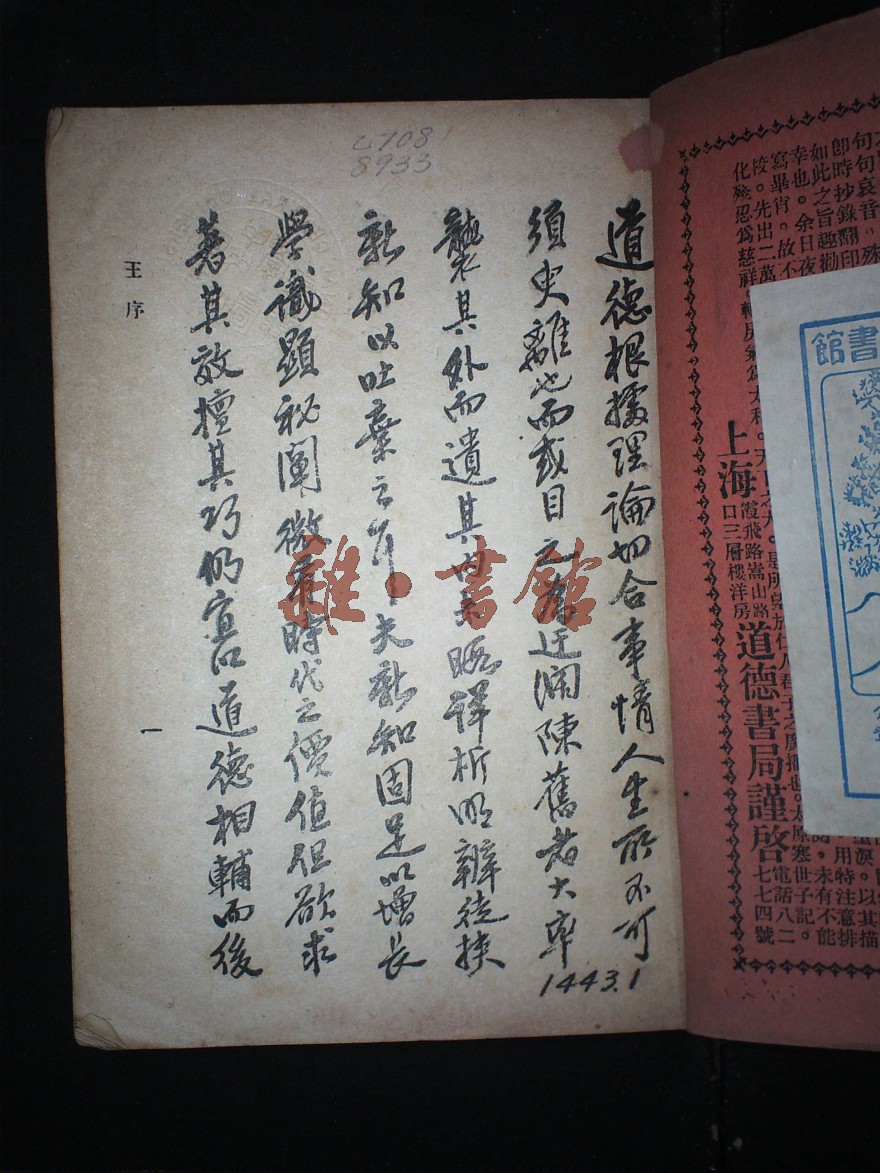 道德根據理論切合事情人生所不可
須臾離也而或目之為迂濶陳舊者大率
襲其外而遺其內未晤詳析明辨徒挟
新知以吐棄之耳夫新知固足以增長
學識顯秘闡微 時代之價值但欲求
著其效擅其巧仍宜以道德相輔而後
王序
一
6708
8933
1443.1
雜·書館
殊
句句哀音
卽時抄錄翻印
如此之旨趣勸
幸也。余日夜
寫畢肖。故不
按。先出二萬
化殘忍爲慈祥。
上海
霞飛路嵩山路
口三層樓洋房
道德書局謹啓
電話八二
七七四號
太原寒世子記。
未有不能
用特注意排
淚。以其描
書館